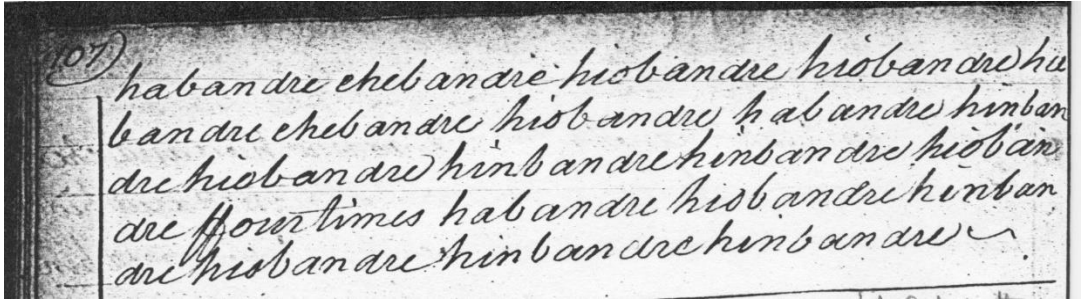 107)
habandre chebandre hiobandre hiobandre hio
bandre chebandre hiobandre habandre hinban
dre hiobandre hinbandre hinbandre hioban
dre ffourtimes habandre hiobandre hinban
dre hiobandre hinbandre hinbandre